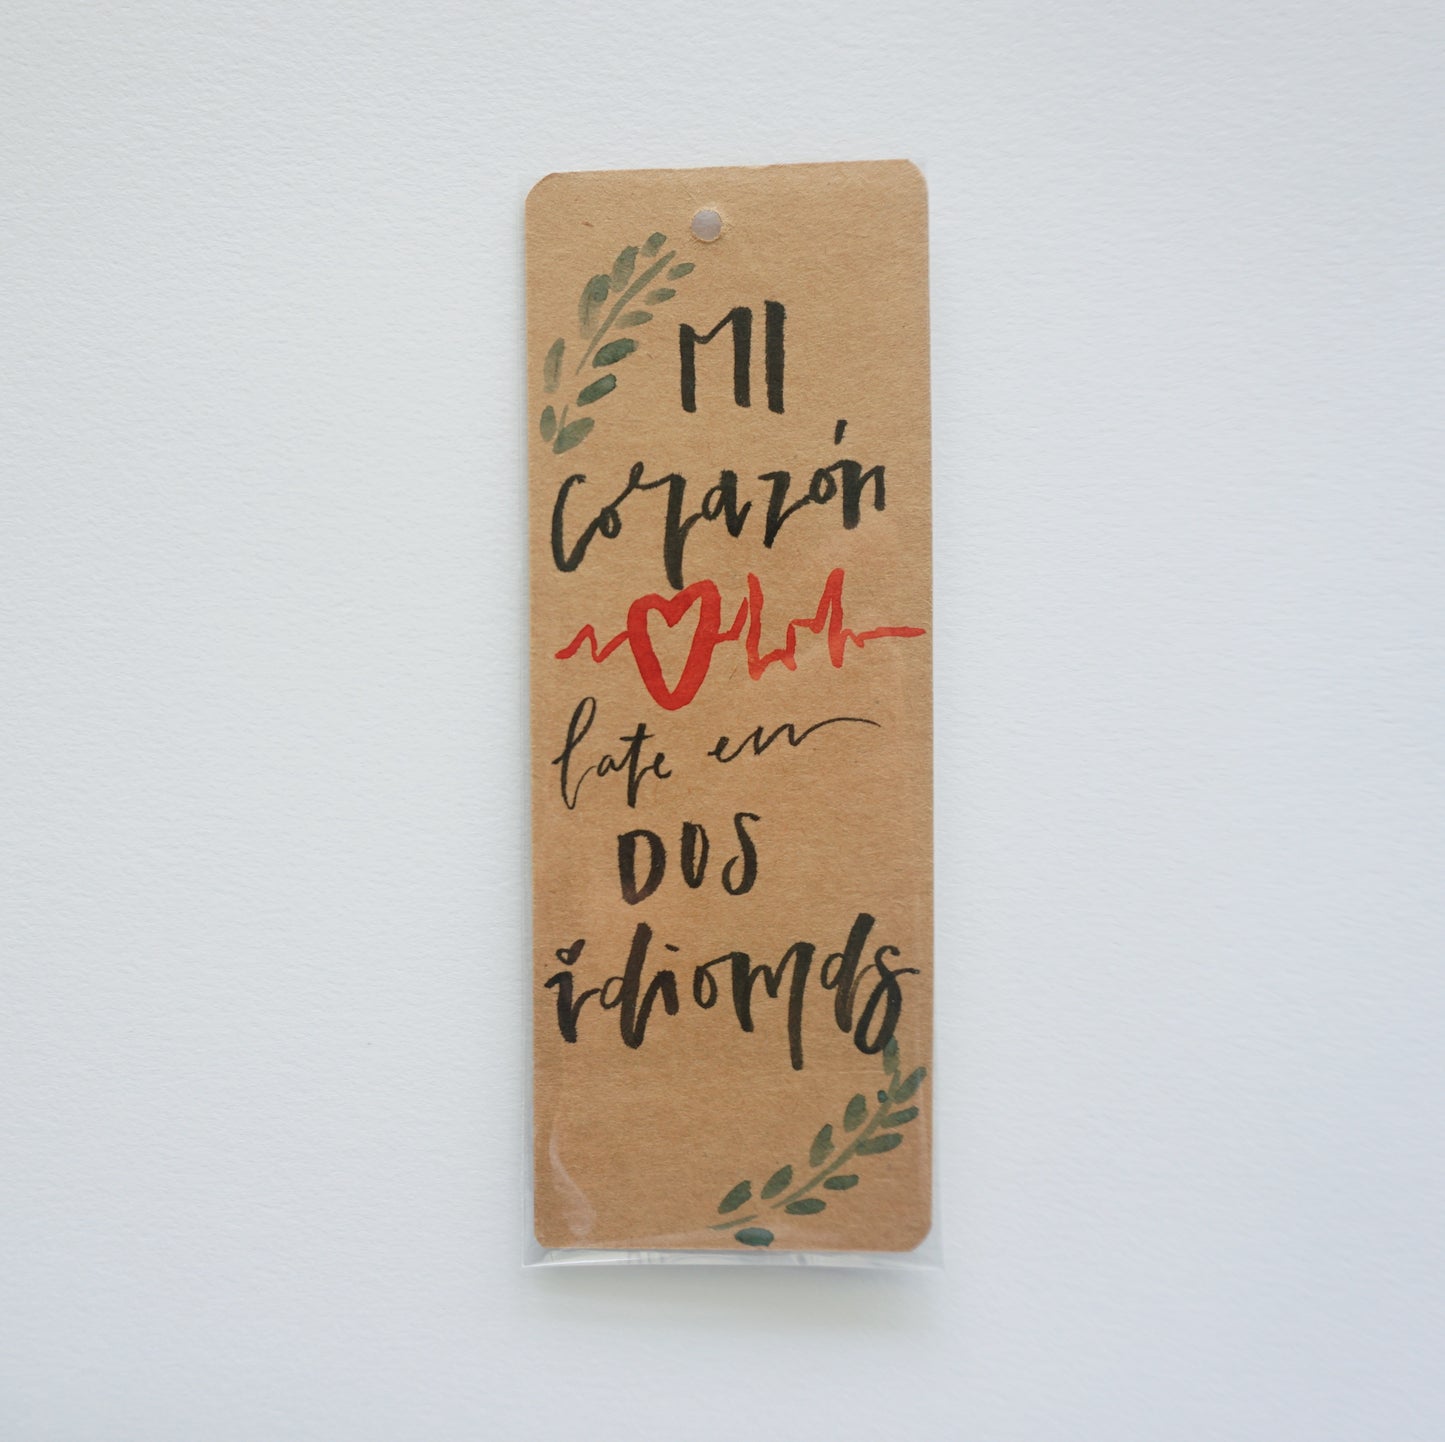 MI
corazón
late en
DOS
idiomas